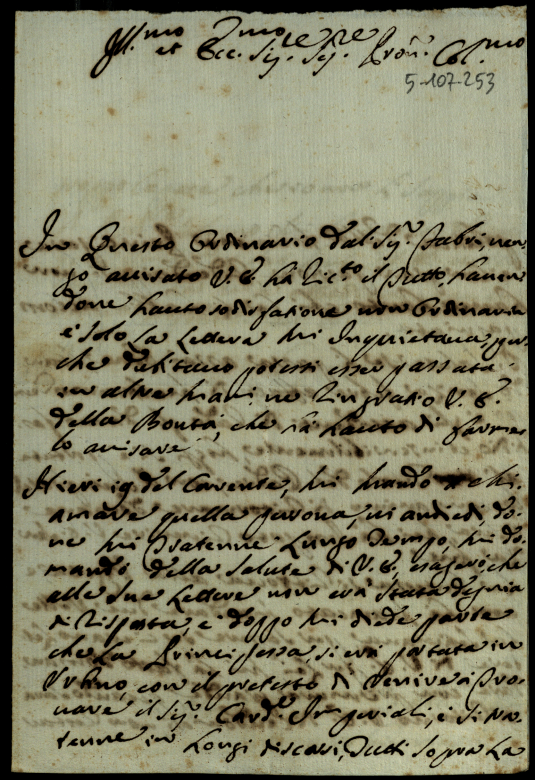 Ill.mo et Ecc.mo Sig.re Sig.re Pron. Col.mo
5-107-253
In Questo Ordinario dal Sig. Fabri, ven
go avisato V. E. hà Ric.to il Tutto, haven
done hauto sodisfatione non Ordinaria
e solo la Lettera mi Inquietava, per
che dubitavo potessi esser passata
in altre mani, ne Ringratio V. E.
della Bontà, che hà hauto di farme
lo avisare
Hieri 19 del Corente, mi mandò a chi
amare quella persona, vi andiedi, do
ve mi Tratenne Lungo Tempo, mi do
mandò della Salute di V. E., esagerò che
alle sue Lettere non era stata degnia
di Risposta, e doppo mi diede parte
che La Principessa, si era portata in
Urbino, con il pretesto di venire à Tro
vare il Sig. Card. Imperiali, e si tra
tenne in Longi discorsi, Tutti sopra La